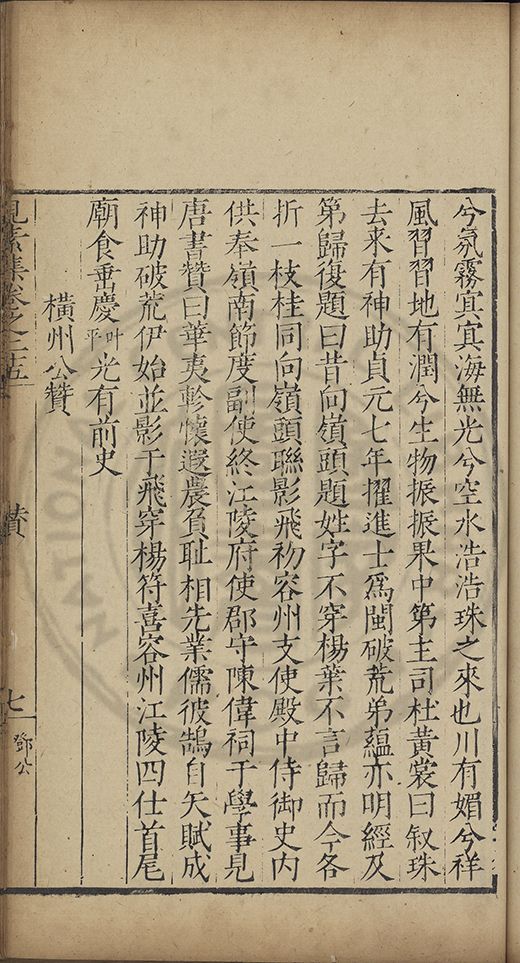 兮氛霧㝠㝠海無光兮空水浩浩珠之來也川有媚兮祥
風習習地有潤兮生物振振果中第主司杜黄裳曰叙珠
去来有神助貞元七年擢進士爲閩破荒弟藴亦明經及
第歸復題曰昔向嶺頭題姓字不穿楊葉不言歸而今各
折一枝桂同向嶺頭聯影飛初容州支使殿中侍御史内
供奉嶺南節度副使終江陵府使郡守陳偉祠于學事見
唐書賛曰華夷軫懷遐農負耻相先業儒彼鵠自矢賦成
神助破荒伊始並影于飛穿楊符喜容州江陵四仕首尾
廟食垂慶叶平光有前史
橫州公賛
見素集卷之二五
賛
七
鄧公